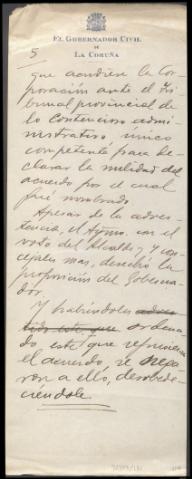 5
EL GOBERNADOR CIVIL
DE
LA CORUÑA
que acudiera la Cor-
poración ante el Tri-
bunal provincial de
lo Contencioso admi-
nistrativo, único
competente para de-
clarar la nulidad del
acuerdo por el cual
fué nombrado.
Apesar de la adver-
tencia, el Aymo, con el
voto del Alcalde, y con-
cejales mas, desechó la
proposición del Goberna-
dor.
Y habiéndoles adver-
tido este que ordena-
do, este que repusieran
el acuerdo, se nega-
ron a ello, desobede-
ciéndole